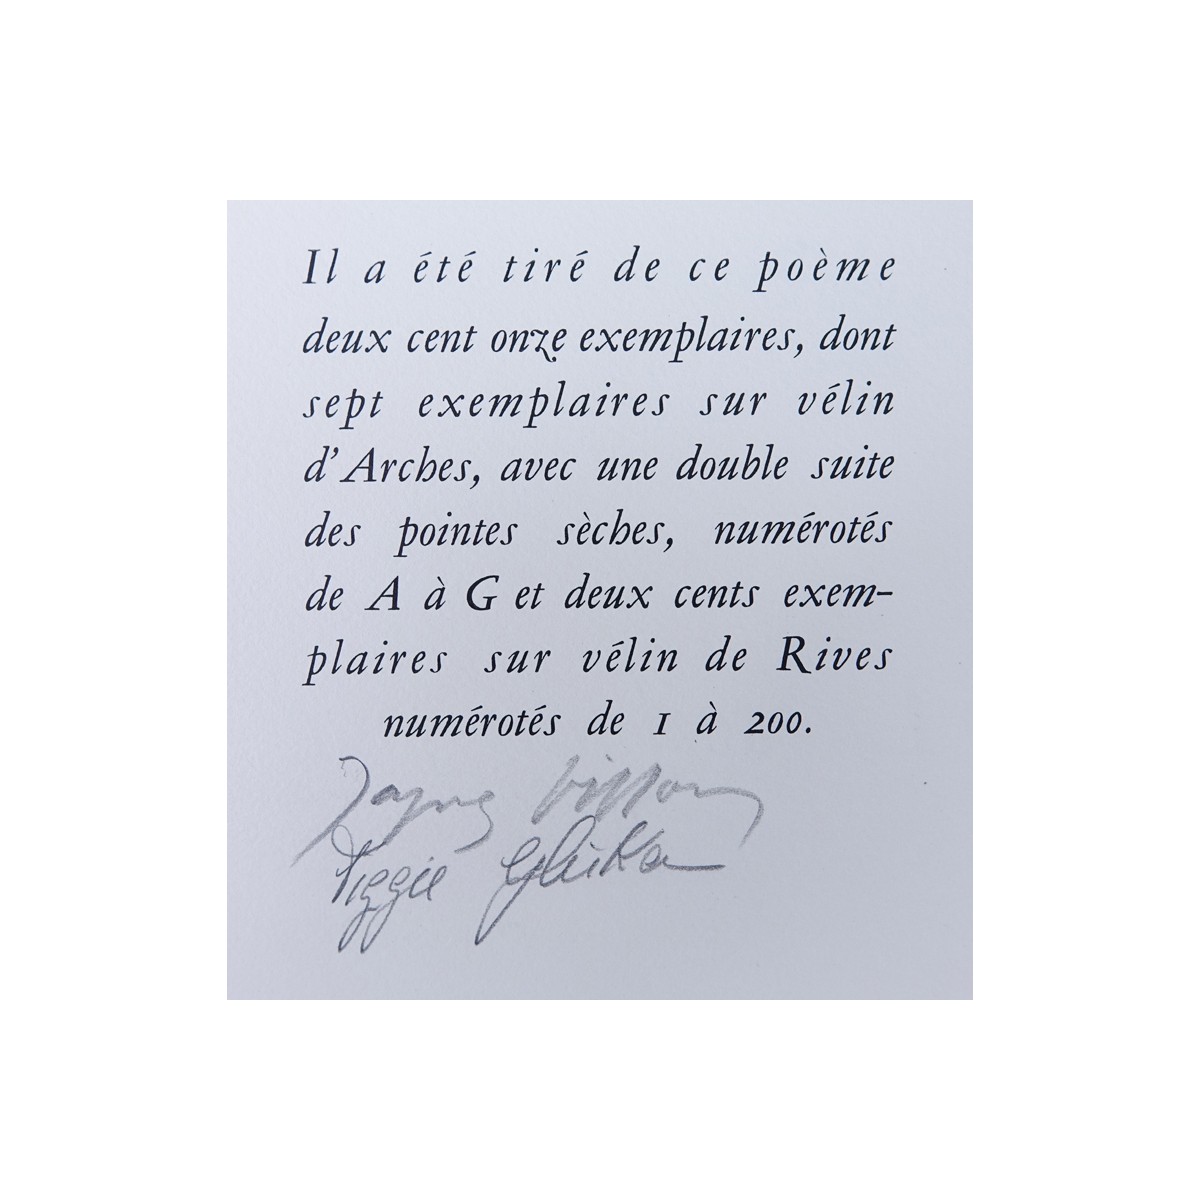 Il a été tiré de ce poème
deux cent onze exemplaires, dont
sept exemplaires sur vélin
d'Arches, avec une double suite
des pointes sèches, numérotés
de A à G et deux cents exem-
plaires sur vélin de Rives
numérotés de 1 à 200.
Jacques Villon